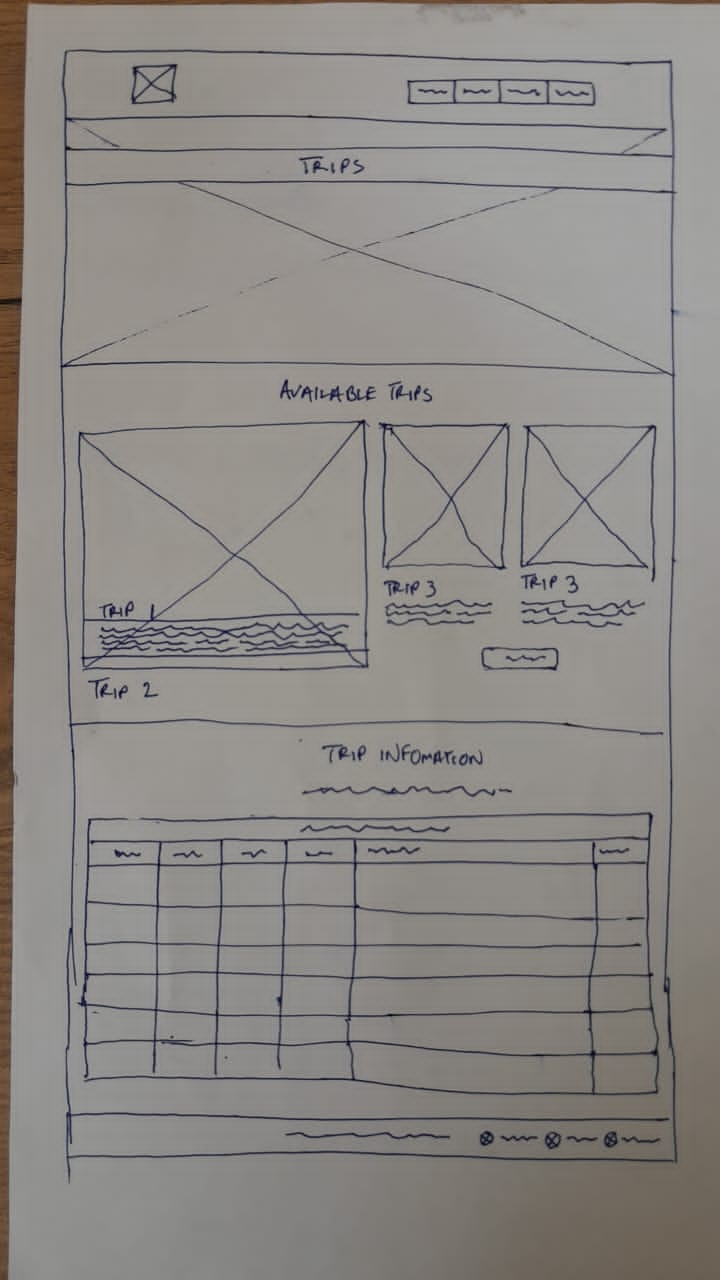 TRIPS
AVAILABLE TRIPS
TRIP 1
TRIP 2
TRIP 3
TRIP 3
TRIP INFOMATION